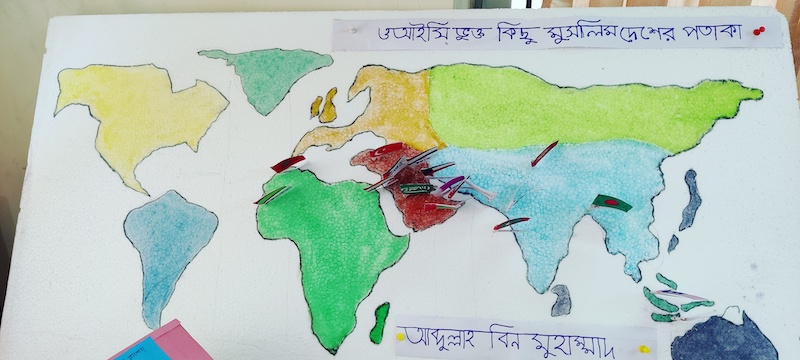 ওআইসি ভুক্ত কিছু মুসলিম দেশের পতাকা
আব্দুল্লাহ বিন মুহাম্মাদ